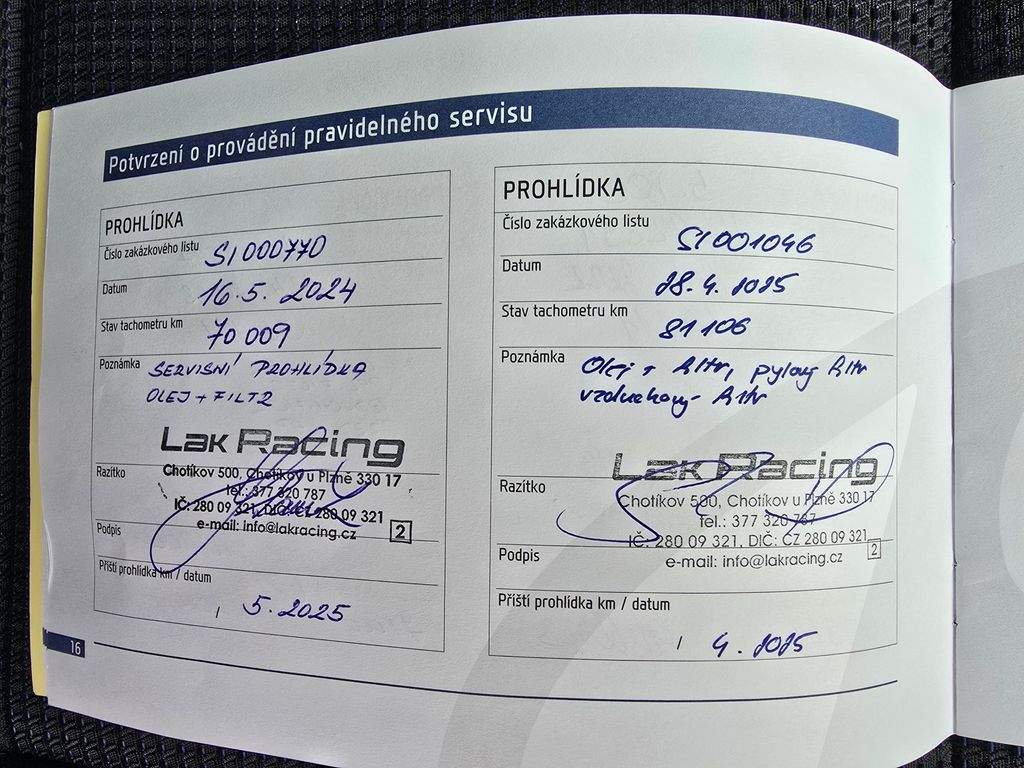 Potvrzení o provádění pravidelného servisu
PROHLÍDKA
Číslo zakázkového listu SI000770
Datum 16.5.2024
Stav tachometru km 70 009
Poznámka SERVISNÍ PROHLÍDKA
OLEJ + FILTR
Lak Racing
Razítko Chotíkov 500, Chotíkov u Plzně 330 17
tel.: 377 320 787
IČ: 280 09 321, DIČ: CZ 280 09 321
Podpis e-mail: info@lakracing.cz 2
Příští prohlídka km / datum
/ 5.2025
PROHLÍDKA
Číslo zakázkového listu SI001046
Datum 28.4.2025
Stav tachometru km 81106
Poznámka Olej + filtr, pylový filtr
vzduchový filtr
Lak Racing
Razítko Chotíkov 500, Chotíkov u Plzně 330 17
Tel.: 377 320 787
IČ: 280 09 321, DIČ: CZ 280 09 321
Podpis e-mail: info@lakracing.cz 2
Příští prohlídka km / datum
/ 4.2025
16